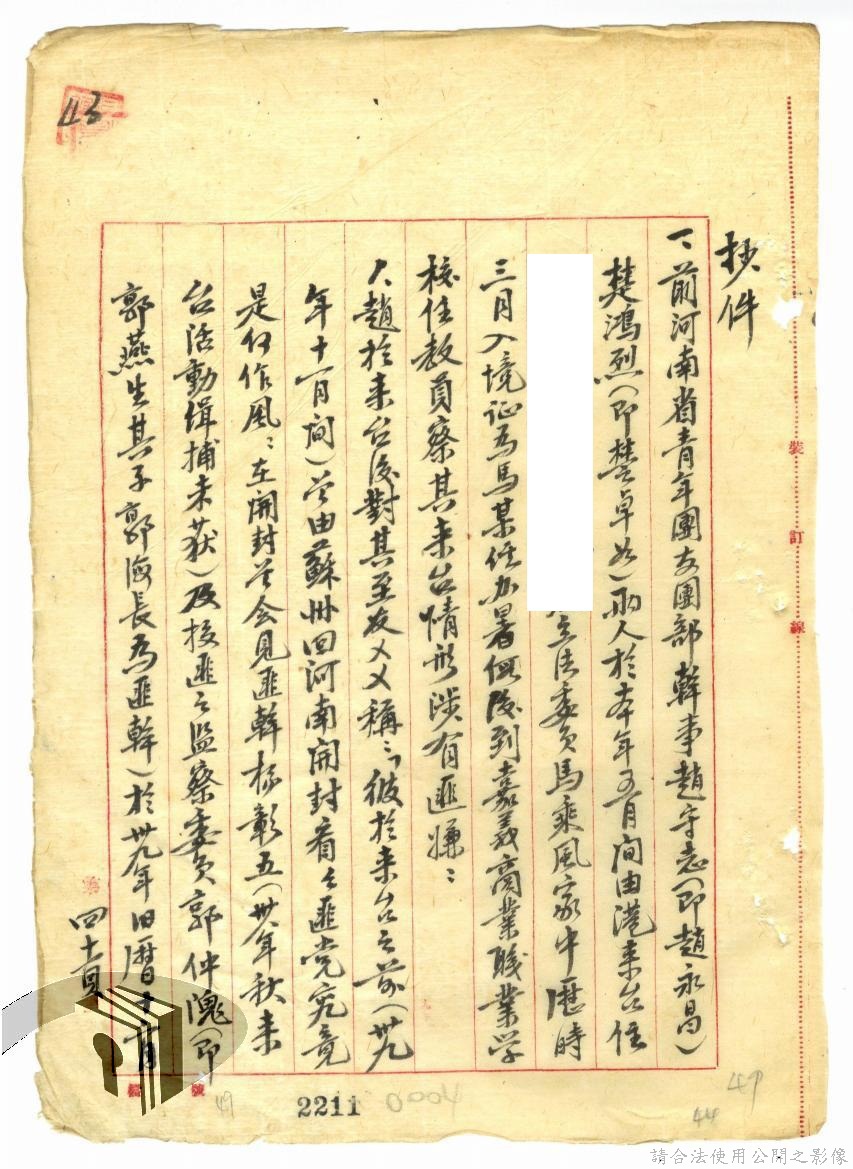 43
抄件
一、前河南省青年團支團部幹事趙守志(即趙永昌)
楚鴻烈(即楚卓如)兩人於本年五月間由港來台住
立法委員馬乘風家中歷時
三月入境証為馬某任办署似後到嘉義商業職業学
校任教員察其來台情形涉有匪嫌：
人趙於來台後對其至友乂乂稱：「彼於來台之前(卅九
年十一月间)曾由蘇州回河南開封看看匪党究竟
是何作風：在開封曾会見匪幹楊彰五(卅八年秋來
台活動缉捕未获)及投匪之监察委員郭仲隗(即
郭燕生其子郭海長為匪幹)於卅九年旧曆十一月
第
四十三頁
號
裝
訂
線
49
2211
0004
44
47
請合法使用公開之影像